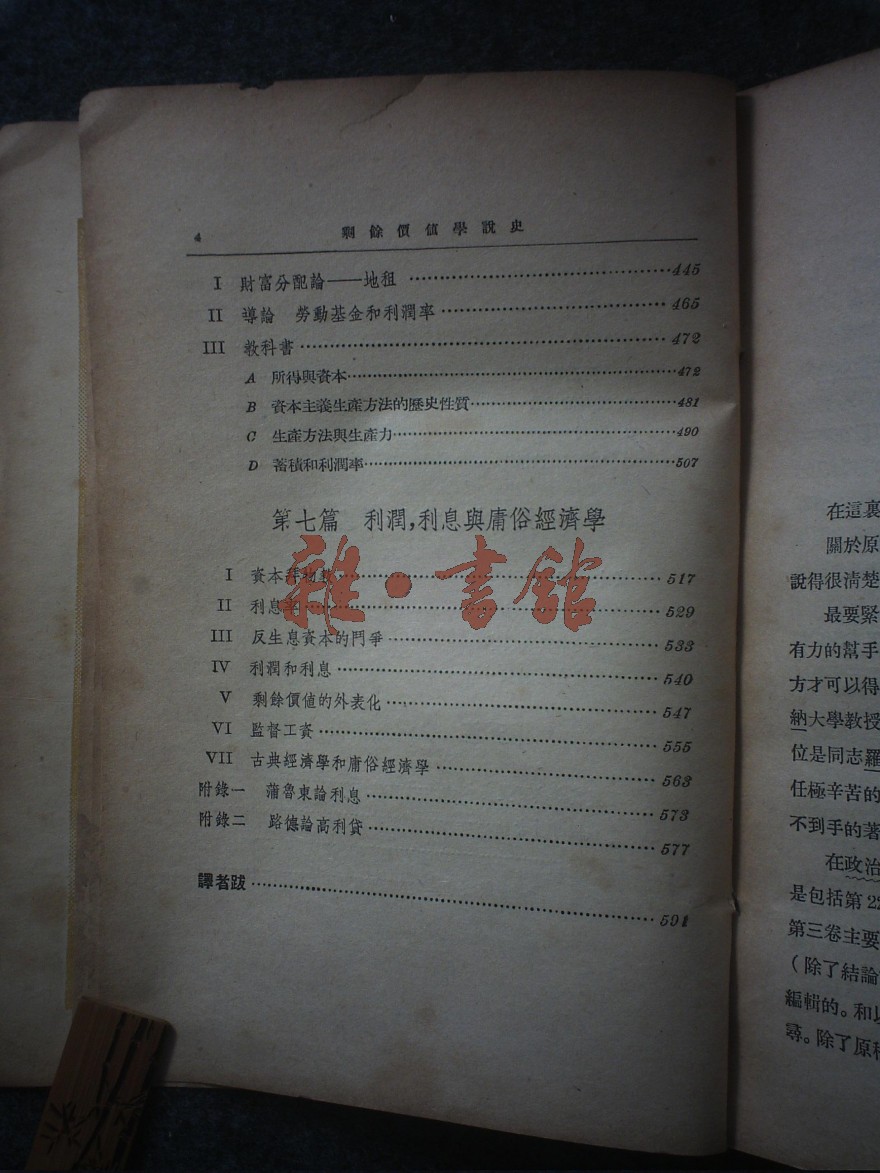 4 剩餘價值學說史
I 財富分配論——地租 ……445
II 導論 勞動基金和利潤率……465
III 教科書……472
A 所得與資本……472
B 資本主義生產方法的歷史性質……481
C 生產方法與生產力……490
D 蓄積和利潤率……507
第七篇 利潤,利息與庸俗經濟學
I 資本拜物教……517
II 利息率……529
III 反生息資本的鬥爭……533
IV 利潤和利息……540
V 剩餘價值的外表化……547
VI 監督工資……555
VII 古典經濟學和庸俗經濟學……563
附錄一 蒲魯東論利息……573
附錄二 路德論高利貸……577
譯者跋……591
雜·書館
在這裏
關於原
說得很清楚
最要緊
有力的幫手
方才可以得
納大學教授
位是同志羅
任極辛苦的
不到手的著
在政治
是包括第22
第三卷主要
(除了結論
編輯的。和以
尋。除了原稿